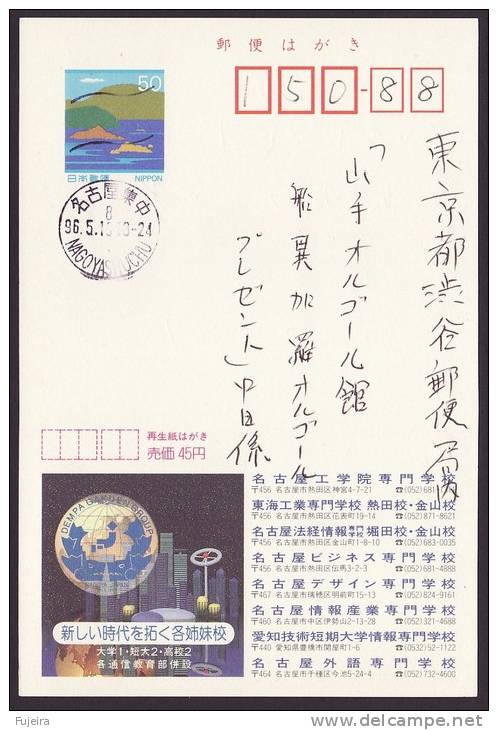 郵便はがき
50
日本郵便 NIPPON
150-88
名古屋集中
8
NAGOYASHUCHU
東京都渋谷郵便局内
「山手オルゴール館
船異加羅オルゴール
プレゼント」中日係
再生紙はがき
売価45円
DEMPA GAKUEN GROUP
新しい時代を拓く各姉妹校
大学1・短大2・高校2
各通信教育部併設
名古屋工学院専門学校
〒456 名古屋市熱田区神宮4-7-21 ☎(052)681
東海工業専門学校 熱田校・金山校
〒456 名古屋市熱田区花表町19-14 ☎(052)871-8621
名古屋法経情報専門学校堀田校・金山校
〒456 名古屋市熱田区金山町1-8-10 ☎(052)683-0035
名古屋ビジネス専門学校
〒456 名古屋市熱田区伝馬3-2-3 ☎(052)681-4888
名古屋デザイン専門学校
〒467 名古屋市瑞穂区明前町15-13 ☎(052)824-9161
名古屋情報産業専門学校
〒460 名古屋市中区伊勢山2-13-28 ☎(052)321-4688
愛知技術短期大学情報専門学校
〒440 愛知県豊橋市関屋町1-6 ☎(0532)52-1122
名古屋外語専門学校
〒464 名古屋市千種区今池5-24-4 ☎(052)732-4600
Fujeira
delcampe.net